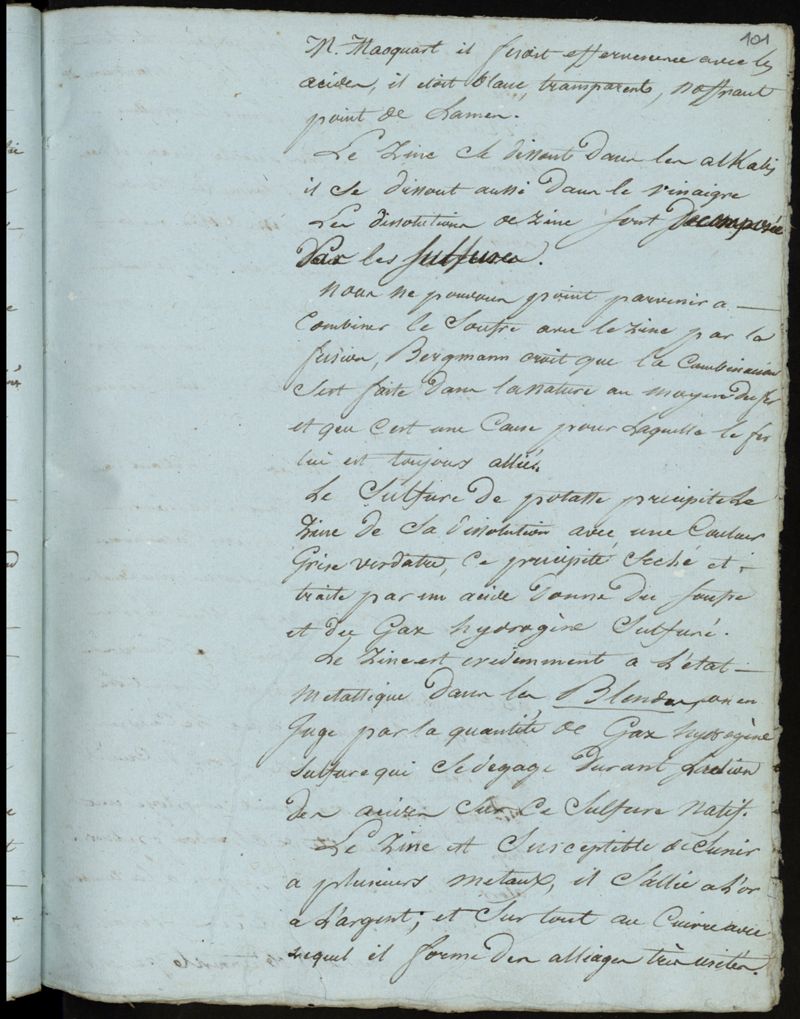 101
M. Macquart il fesoit effervescence avec les
acides, il étoit blanc, transparents, n'offrant
point de Lames.
Le Zinc Se dissout Dans les alKalis
il Se dissout aussi Dans le vinaigre
Les dissolutions de Zinc sont Decomposées
Par les Sulfures.
Nous ne pouvons point parvenir a —
Combiner le Soufre avec le Zinc par la
fusion, Bergmann croit que la Combinaison
S'est faite Dans la nature au moyen du fer
et que C'est une Cause pour Laquelle le fer
lui est toujours alliés.
Le Sulfure De potasse precipite Le
Zinc de Sa dissolution avec une Couleur
Grise verdatre, Ce precipité Seché et —
traité par un acide Donne Du Soufre
et du Gaz hydrogène Sulfuré.
Le Zinc est evidemment a L'état —
Metallique Dans les Blendes, on en
Juge par la quantité de Gaz hydrogène
Sulfure qui Se degage Durant L'action
Des acides Sur Ce Sulfure Natif.
Le Zinc est Susceptible de S'unir
a plusieurs metaux, il S'allie a L'or
a L'argent; et Sur tout au Cuivre avec
Lequel il forme Des alliages très usités.